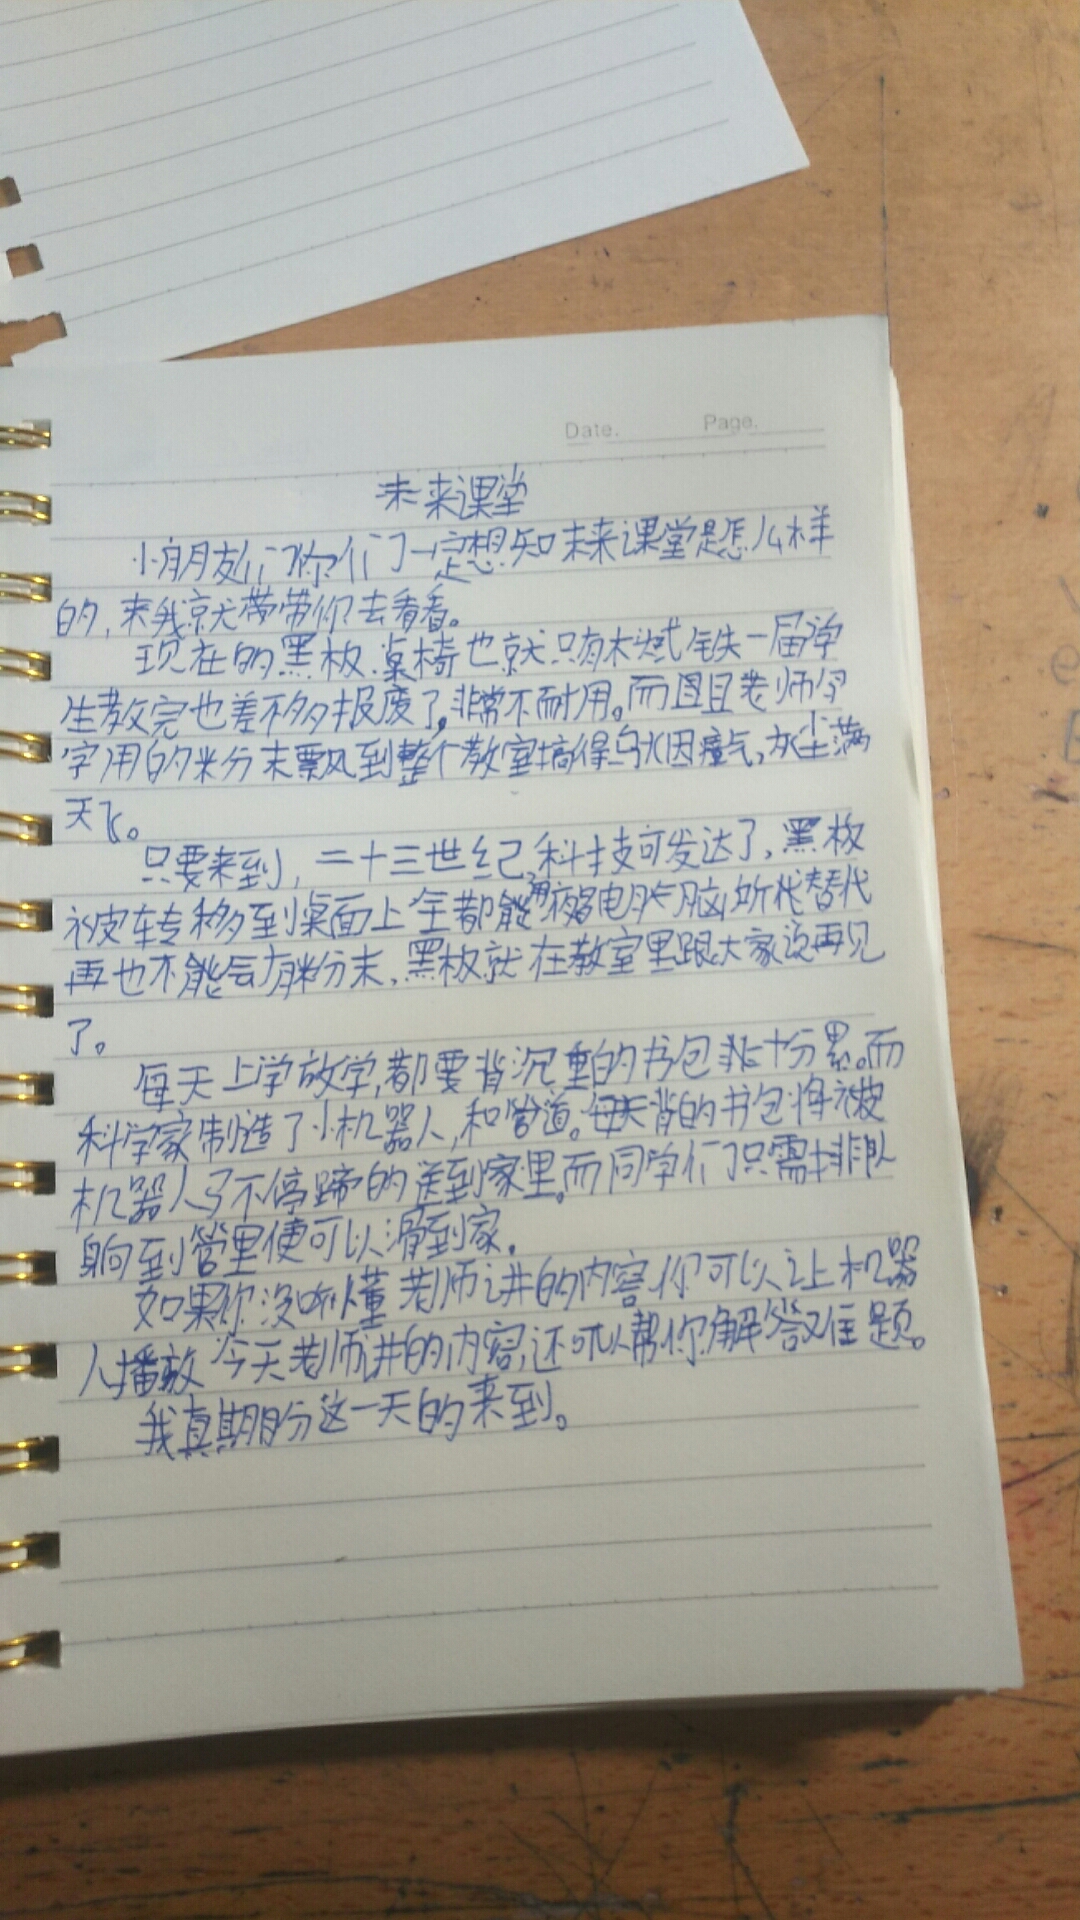 Date. Page.
未来课堂
小朋友们你们一定想知未来课堂是怎么样
的,来我就带带你去看看。
现在的黑板.桌椅也就只有木式铁一届学
生教完也差不多报废了,非常不耐用。而且且老师
字用的粉末飘到整个教室搞得乌水因瘴气,灰尘满
天飞。
只要来到,二十三世纪,科技可发达了,黑板
被转移到桌面上全都能用液电脑所代替代
再也不能会有粉末,黑板就在教室里跟大家说再见
了。
每天上学放学,都要背沉重的书包非十分累。而
科学家制造了小机器人,和管道。每天背的书包将被
机器人马不停蹄的送到家里。而同学们只需排队
躺到管里使可以滑到家.
如果你没听懂老师讲的内容,你可以让机器
人播放今天老师讲的内容,还可以帮你解答难题。
我真期盼这一天的来到。